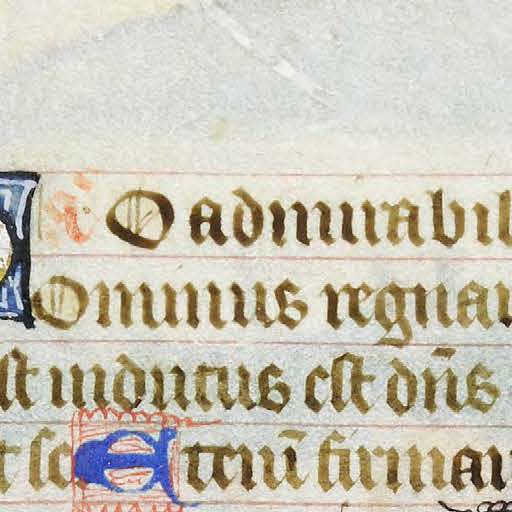 O admirabil
Ominus regnau
st indutus est dn̄s
Etenī firmau